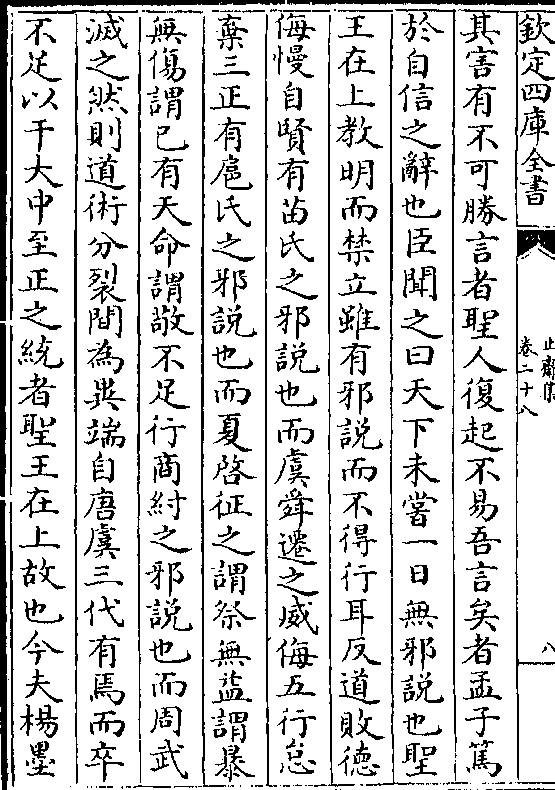 欽定四庫全書
卷二十八
八
其害有不可勝言者聖人復起不易吾言矣者孟子篤
於自信之辭也臣聞之曰天下未嘗一日無邪說也聖
王在上教明而禁立雖有邪說而不得行耳反道敗德
侮慢自賢有苗氏之邪說也而虞舜遷之威侮五行怠
棄三正有扈氏之邪說也而夏啓征之謂祭無益謂暴
無傷謂已有天命謂敬不足行商紂之邪說也而周武
滅之然則道術分裂間為異端自唐虞三代有焉而卒
不足以干大中至正之統者聖王在上故也今夫楊墨